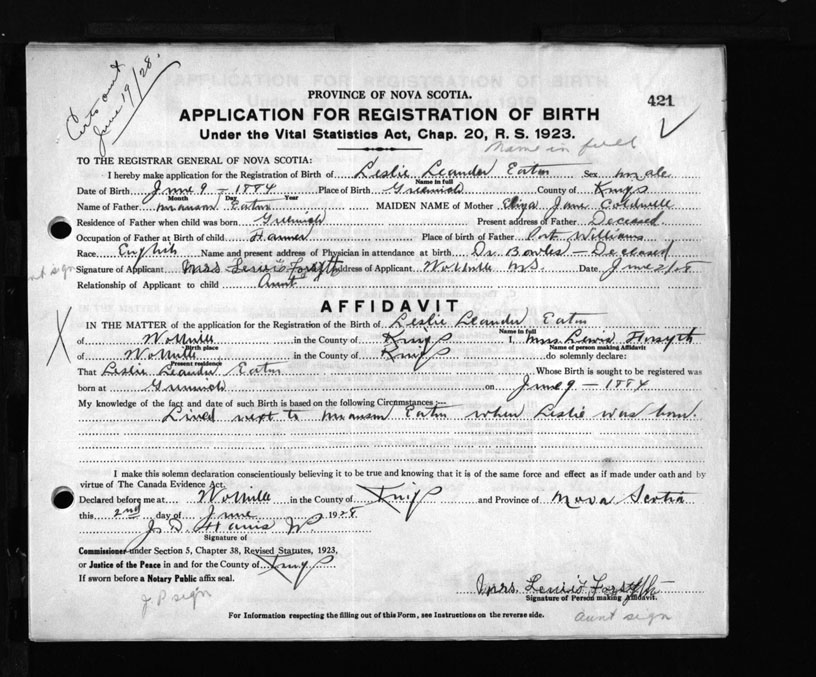 Certs out
June 19/28.
PROVINCE OF NOVA SCOTIA.
421
APPLICATION FOR REGISTRATION OF BIRTH
Under the Vital Statistics Act, Chap. 20, R. S. 1923.
Name in full
TO THE REGISTRAR GENERAL OF NOVA SCOTIA:
I hereby make application for the Registration of Birth of Leslie Leander Eaton Sex male
Name in full
Date of Birth June 9 - 1884 Place of Birth Greenwich County of Kings
Month Day Year
Name of Father Manson Eaton MAIDEN NAME of Mother Eliza Jane Coldwell
Residence of Father when child was born Greenwich Present address of Father Deceased
Occupation of Father at Birth of child Farmer Place of birth of Father Port Williams
Race English Name and present address of Physician in attendance at birth Dr. Bowles - Deceased
aunt sign Signature of Applicant Mrs Lewis Forsyth Address of Applicant Wolfville N.S. Date June 2/28
Relationship of Applicant to child Aunt
AFFIDAVIT
IN THE MATTER of the application for the Registration of the Birth of Leslie Leander Eaton
Name in full
of Wolfville in the County of Kings I, Mrs. Lewis Forsyth
Birth place Name of person making Affidavit
of Wolfville in the County of Kings do solemnly declare:
Present residence
That Leslie Leander Eaton Whose Birth is sought to be registered was
born at Greenwich on June 9 - 1884
My knowledge of the fact and date of such Birth is based on the following Circumstances :—
Lived next to Manson Eaton when Leslie was born.
I make this solemn declaration conscientiously believing it to be true and knowing that it is of the same force and effect as if made under oath and by
virtue of The Canada Evidence Act.
Declared before me at Wolfville in the County of Kings and Province of Nova Scotia
this 2nd day of June 1928
Signature of
Commissioner under Section 5, Chapter 38, Revised Statutes, 1923,
or Justice of the Peace in and for the County of Kings
If sworn before a Notary Public affix seal.
J P sign
Mrs. Lewis Forsyth
Signature of Person making Affidavit.
For Information respecting the filling out of this Form, see Instructions on the reverse side.
Aunt sign